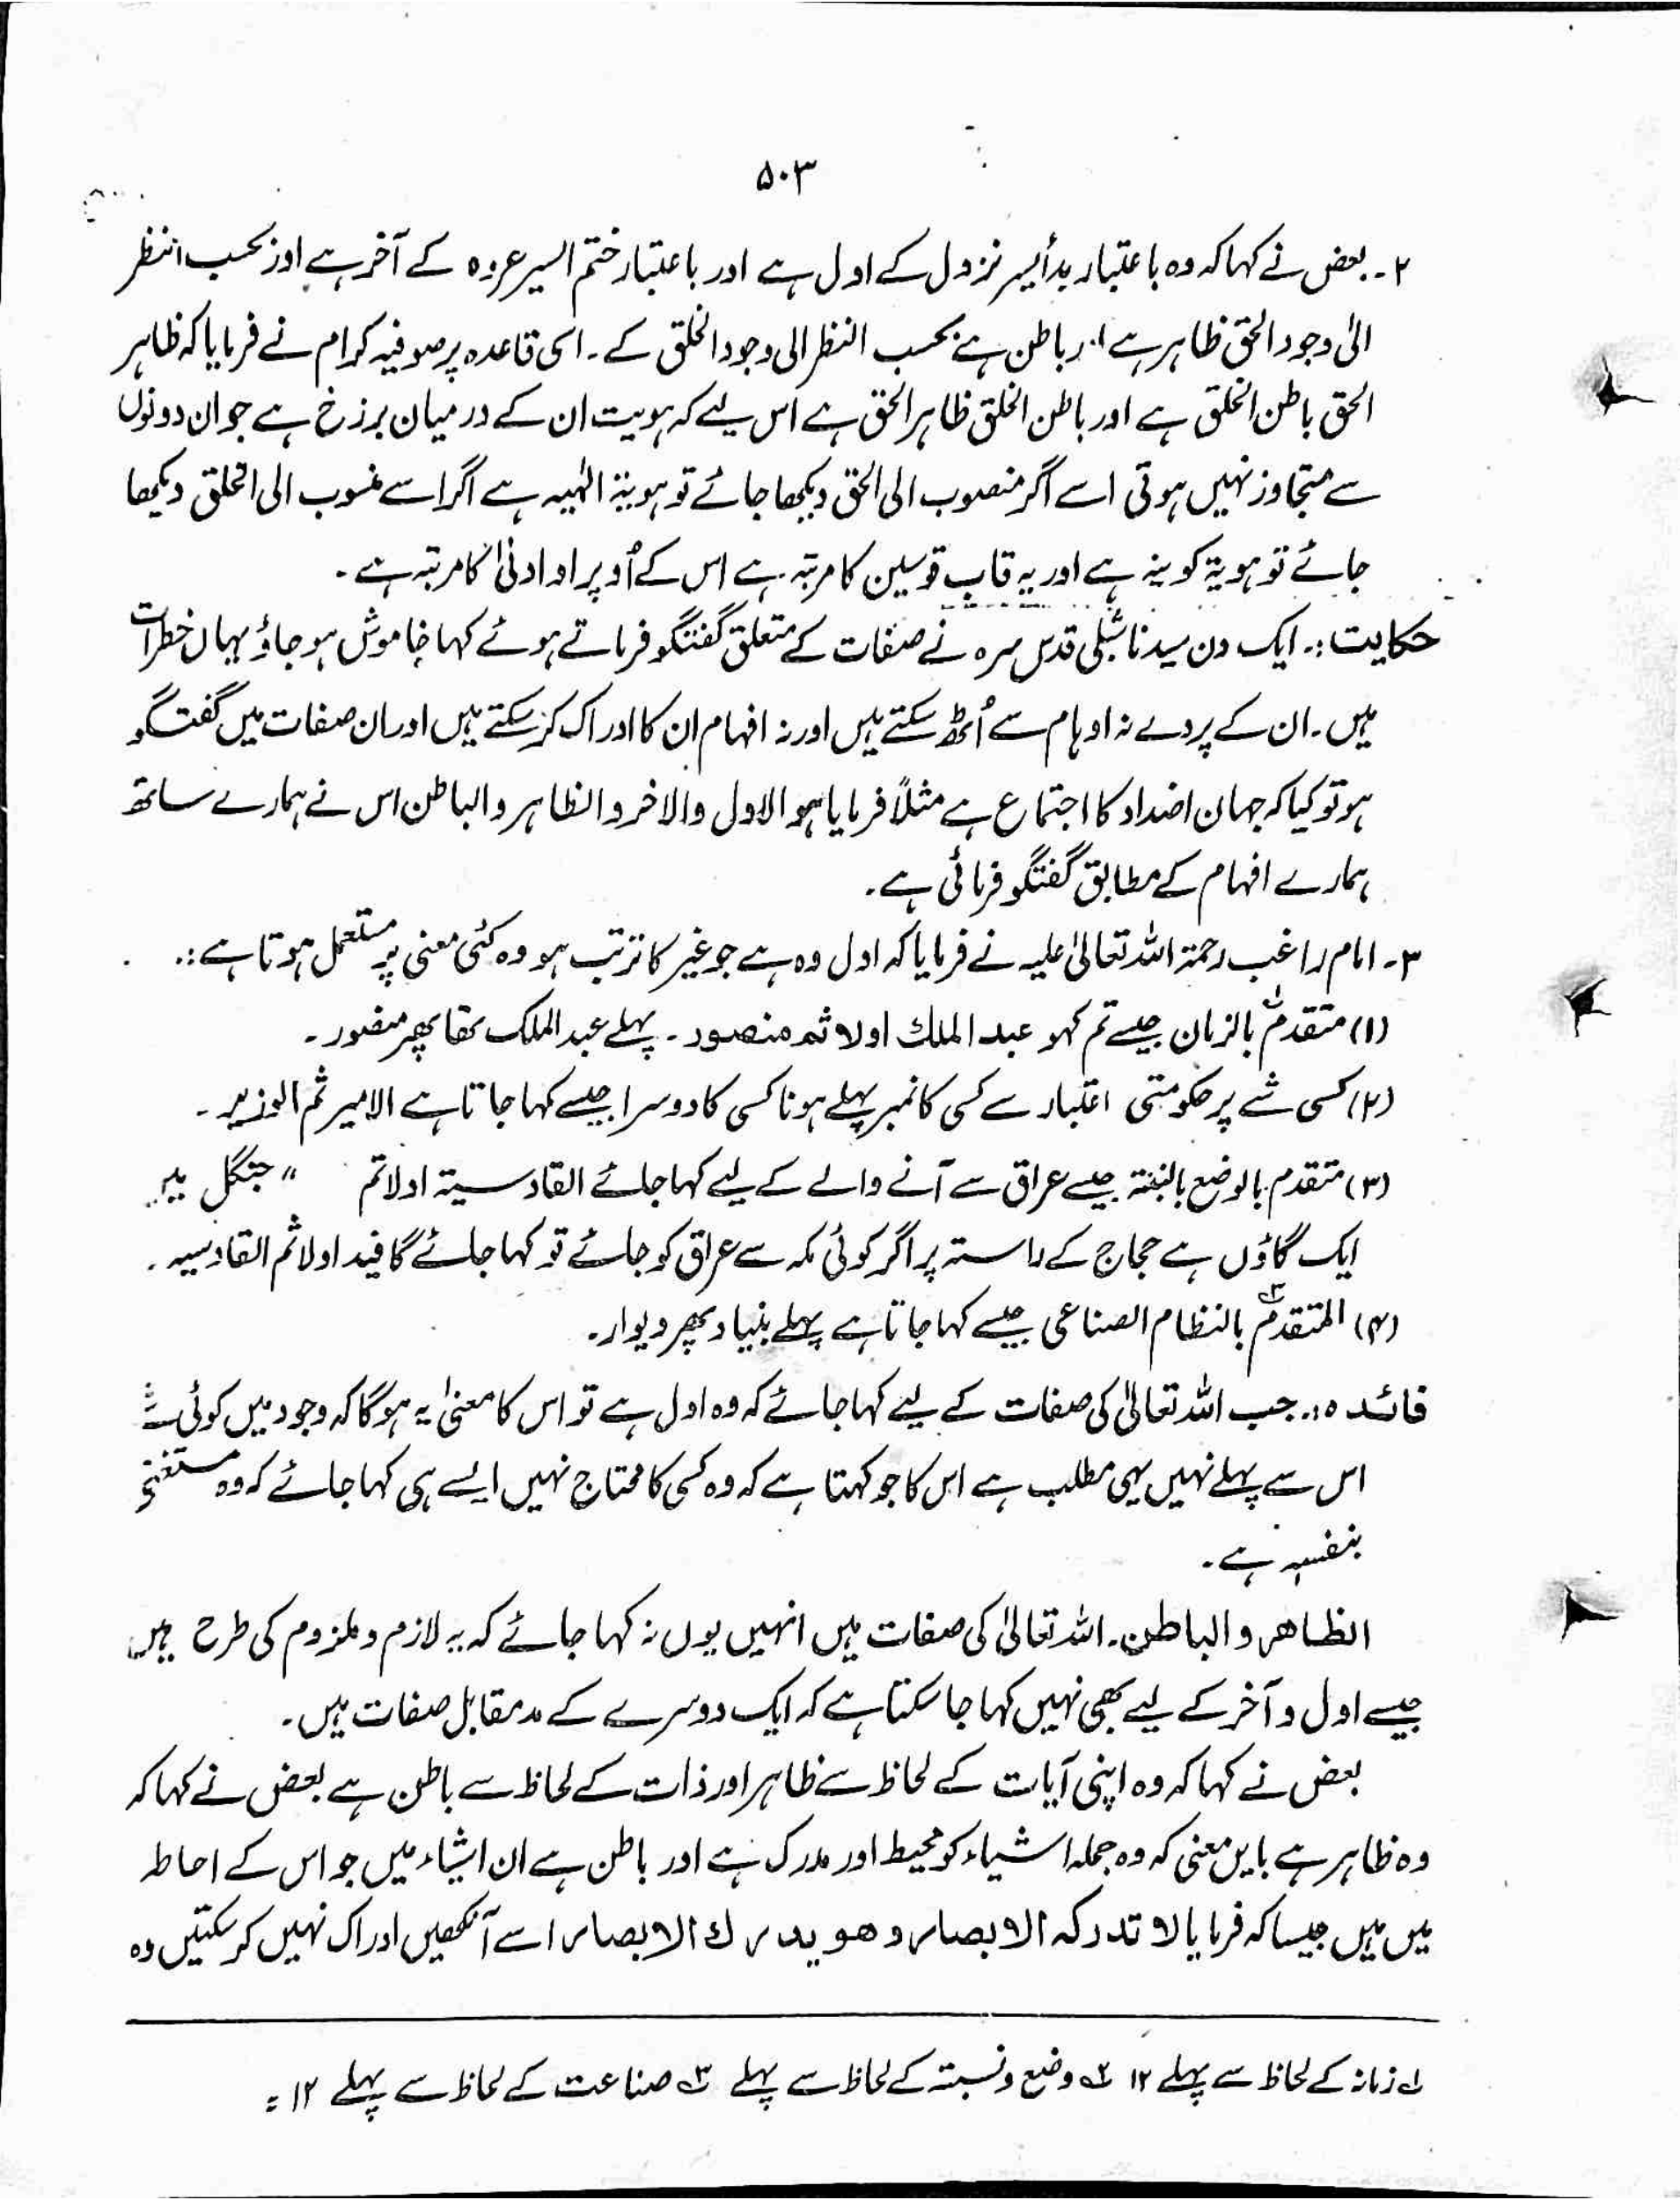 ۵۰۳
۲۔ بعض نے کہا کہ وہ باعتبار بدأ سیر نزول کے اول ہے اور باعتبار ختم السیر عروہ کے آخر ہے اور بحسب النظر
الیٰ وجود الحق ظاہر ہے اور باطن ہے بحسب النظر الی وجود الخلق کے۔ اسی قاعدہ پر صوفیہ کرام نے فرمایا کہ ظاہر
الحق باطن الخلق ہے اور باطن الخلق ظاہر الحق ہے اس لیے کہ ہویت ان کے درمیان برزخ ہے جو ان دونوں
سے متجاوز نہیں ہوتی اسے اگر منصوب الی الحق دیکھا جائے تو ہویۃ الٰہیہ ہے اگر اسے منسوب الی الخلق دیکھا
جائے تو ہویۃ کونیہ ہے اور یہ قاب قوسین کا مرتبہ ہے اس کے اُوپر او ادنیٰ کا مرتبہ ہے۔
حکایت :۔ ایک دن سیدنا شبلی قدس سرہ نے صفات کے متعلق گفتگو فرماتے ہوئے کہا خاموش ہو جاؤ یہاں خطرات
ہیں۔ ان کے پردے نہ اوہام سے اُٹھ سکتے ہیں اور نہ افہام ان کا ادراک کر سکتے ہیں اور ان صفات میں گفتگو
ہو تو کیا کہ جہان اضداد کا اجتماع ہے مثلاً فرمایا ہو الاول والاخر والظاہر والباطن اس نے ہمارے ساتھ
ہمارے افہام کے مطابق گفتگو فرمائی ہے۔
۳۔ امام راغب رحمۃ اللہ تعالیٰ علیہ نے فرمایا کہ اول وہ ہے جو غیر کا ترتب ہو وہ کئی معنی پر مستعمل ہوتا ہے :۔
(۱) متقدم بالزمان جیسے تم کہو عبد الملك اولا ثم منصور۔ پہلے عبد الملک تھا پھر منصور۔
(۲) کسی شے پر حکومتی اعتبار سے کسی کا نمبر پہلے ہونا کسی کا دوسرا جیسے کہا جاتا ہے الامیر ثم الوزیر۔
(۳) متقدم بالوضع بالنسبۃ جیسے عراق سے آنے والے کے لیے کہا جائے القادسیۃ اولا ثم " جنگل میں
ایک گاؤں ہے حجاج کے راستہ پر اگر کوئی مکہ سے عراق کو جائے تو کہا جائے گا فید اولا ثم القادسیہ۔
(۴) المتقدم بالنظام الصناعی جیسے کہا جاتا ہے پہلے بنیاد پھر دیوار۔
فائدہ :۔ جب اللہ تعالیٰ کی صفات کے لیے کہا جائے کہ وہ اول ہے تو اس کا معنیٰ یہ ہوگا کہ وجود میں کوئی شے
اس سے پہلے نہیں یہی مطلب ہے اس کا جو کہتا ہے کہ وہ کسی کا محتاج نہیں ایسے ہی کہا جائے کہ وہ مستغنی
بنفسہ ہے۔
الظاهر والباطن۔ اللہ تعالیٰ کی صفات ہیں انہیں یوں نہ کہا جائے کہ یہ لازم و ملزوم کی طرح ہیں
جیسے اول و آخر کے لیے بھی نہیں کہا جا سکتا ہے کہ ایک دوسرے کے مد مقابل صفات ہیں۔
بعض نے کہا کہ وہ اپنی آیات کے لحاظ سے ظاہر اور ذات کے لحاظ سے باطن ہے بعض نے کہا کہ
وہ ظاہر ہے بایں معنی کہ وہ جملہ اشیاء کو محیط اور مدرک ہے اور باطن ہے ان اشیاء میں جو اس کے احاطہ
میں ہیں جیسا کہ فرمایا لا تدركه الابصار وهو يدرك الابصار اسے آنکھیں ادراک نہیں کر سکتیں وہ
۱؎ زمانہ کے لحاظ سے پہلے ۱۲ ۲؎ وضع و نسبتہ کے لحاظ سے پہلے ۳؎ صناعت کے لحاظ سے پہلے ۱۲ =